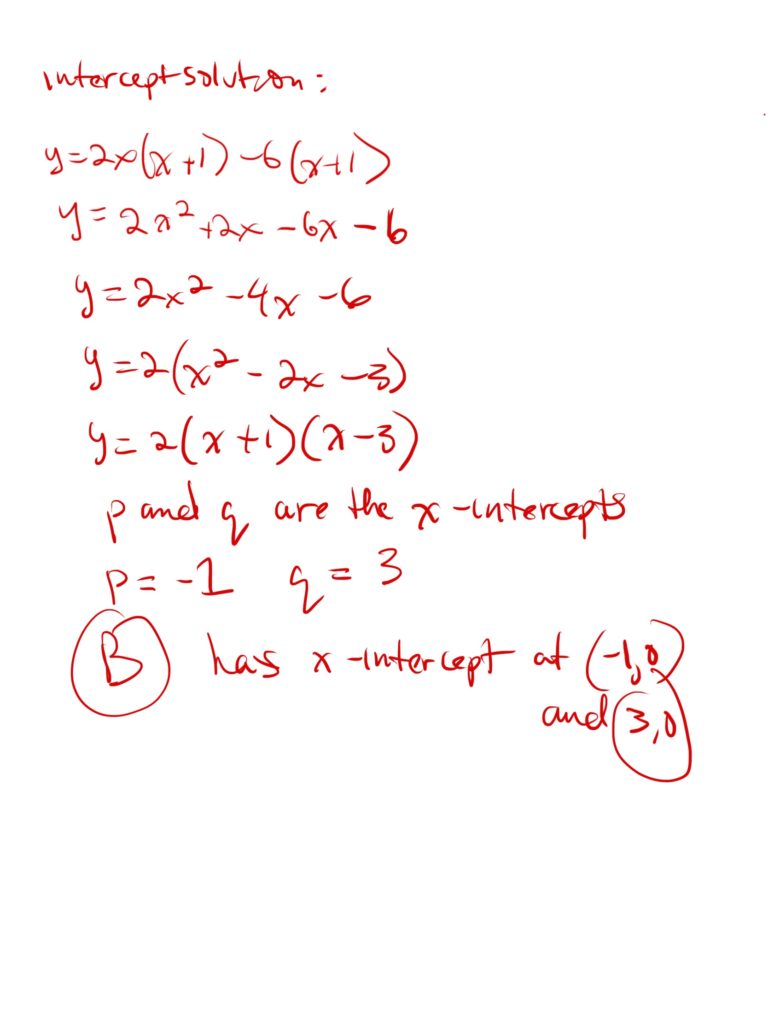 interceptsolution:
y=2x(x+1)-6(x+1)
y=2x²+2x-6x-6
y=2x²-4x-6
y=2(x²-2x-3)
y=2(x+1)(x-3)
p and q are the x-intercepts
p=-1 q=3
B has x-intercept at (-1,0)
and (3,0)